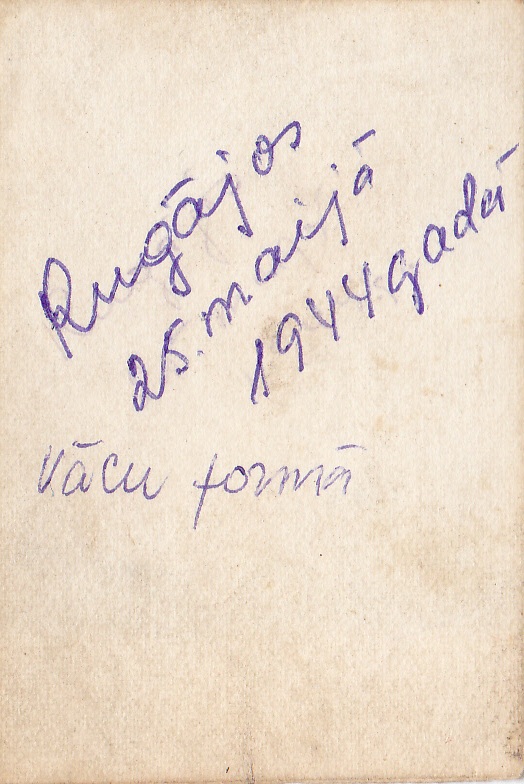 Rugājos
25. maijā
1944 gadā
Vācu formā